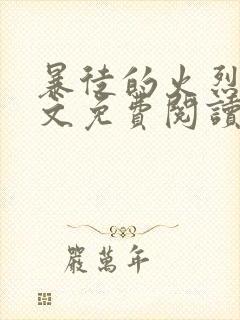 暴徒的火烈
文免費閱讀
嚴萬年